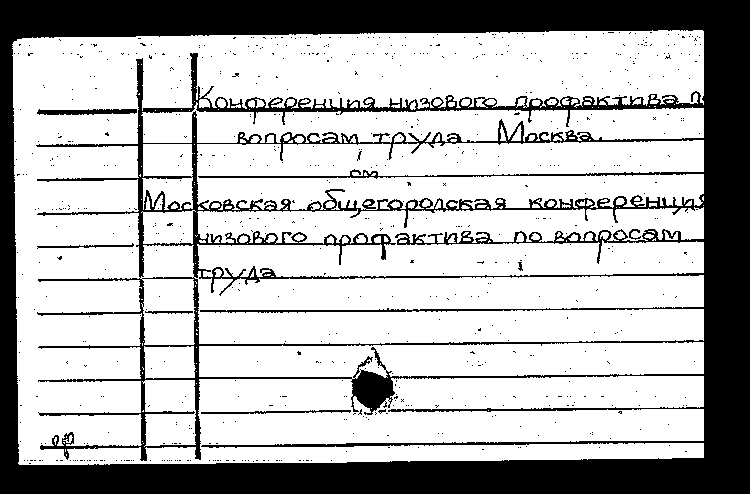 Конференция низового профактива по
вопросам труда. Москва.
см.
Московская общегородская конференция
низового профактива по вопросам
труда